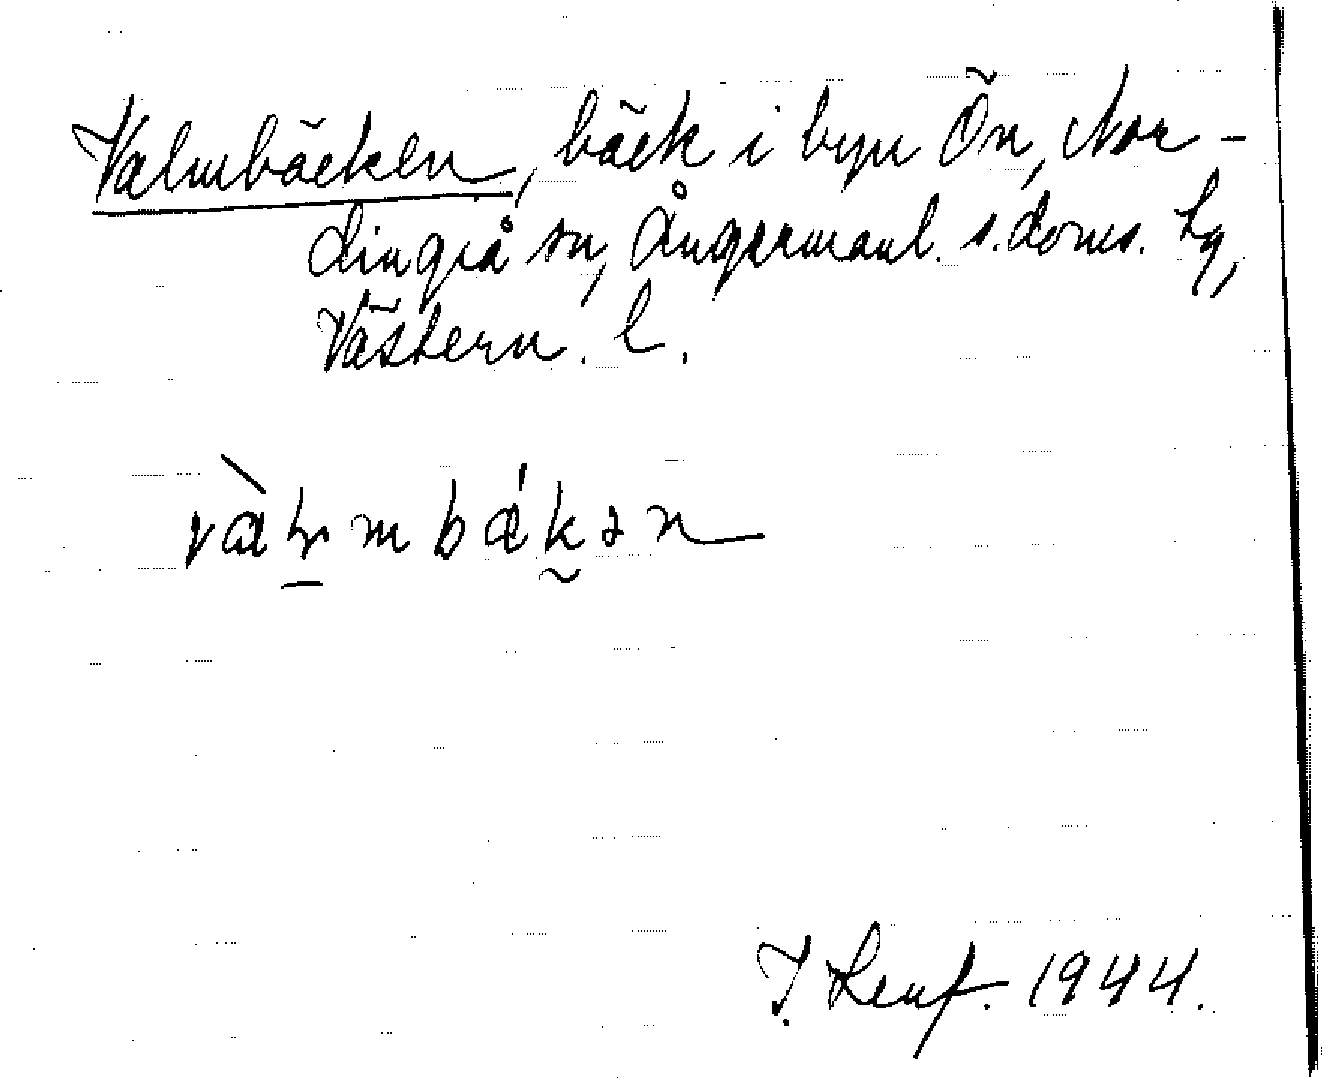 Valmbäcken, bäck i byn Ön, Nor-
dingrå sn, Ångermanl. s. doms. hg,
Västern. l.
vàlmbákən
J. Lenf. 1944.